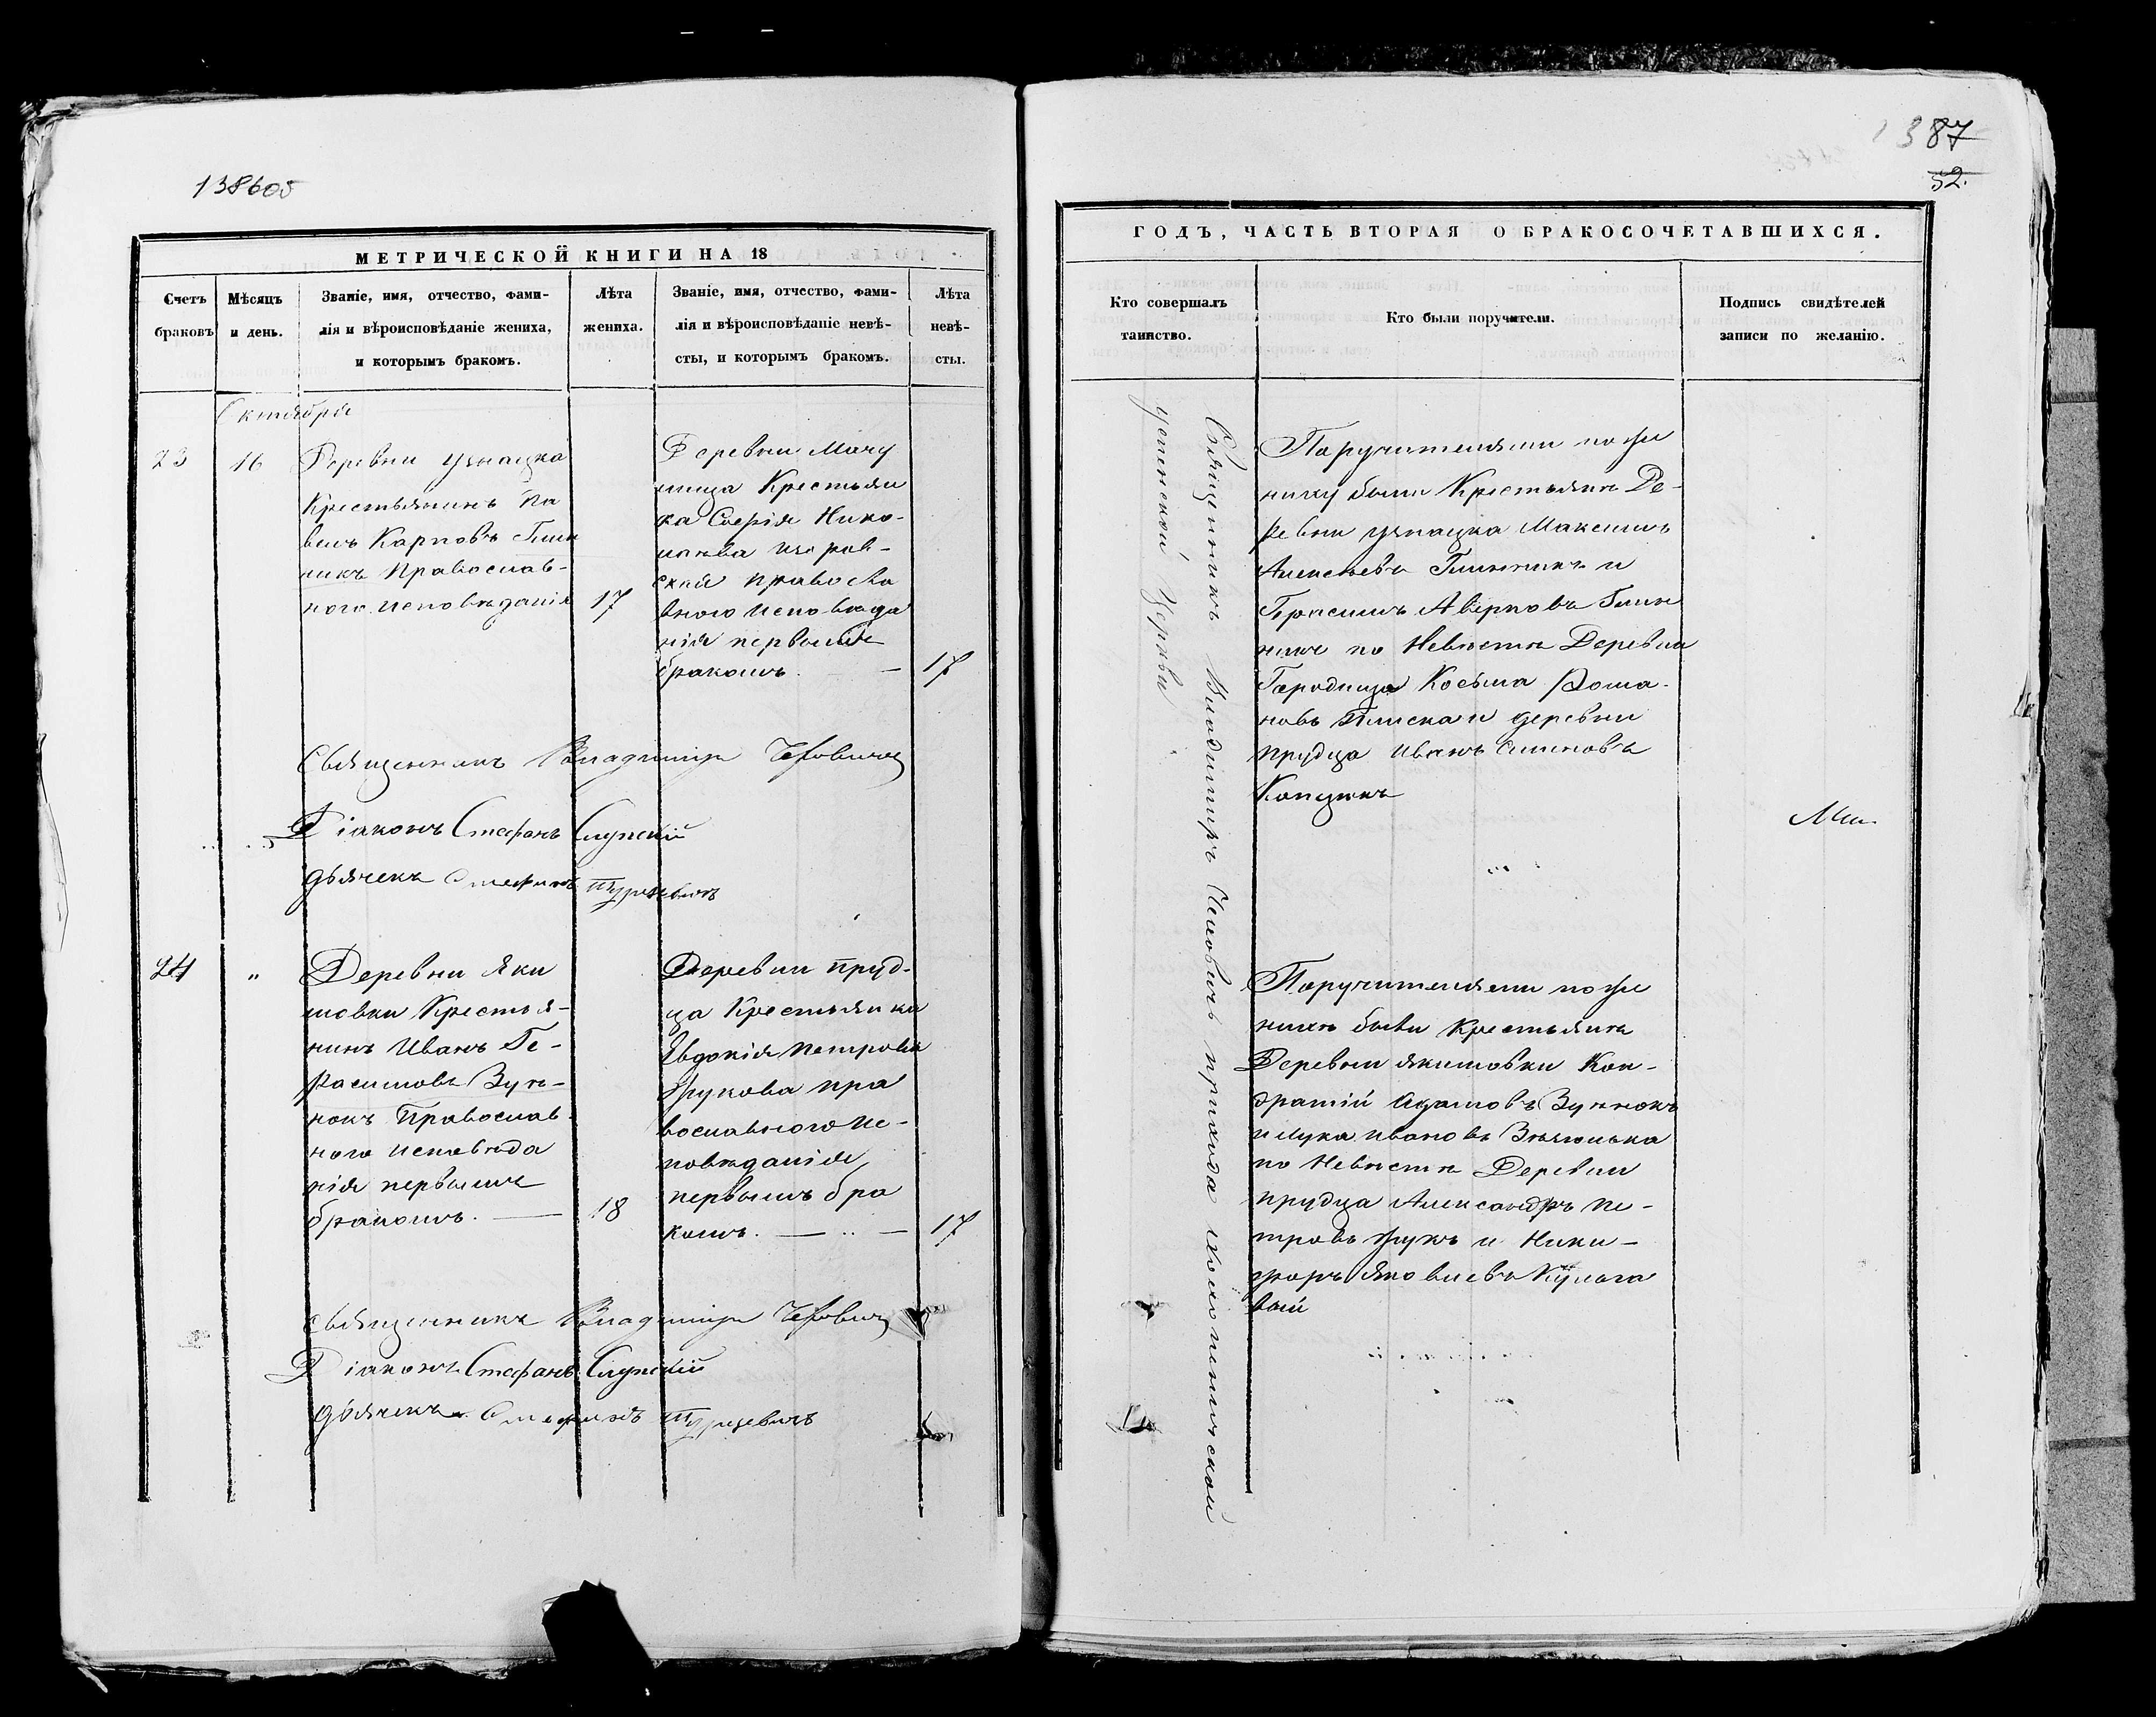 138605
МЕТРИЧЕСКОЙ КНИГИ НА 18
Счетъ браковъ
Мѣсяцъ и день.
Званіе, имя, отчество, фами-
лія и вѣроисповѣданіе жениха,
и которымъ бракомъ.
Лѣта
жениха.
Званіе, имя, отчество, фами-
лія и вѣроисповѣданіе невѣ-
сты, и которымъ бракомъ.
Лѣта
невѣ-
сты.
Октября
23
16
Деревни
Крестьянинъ Па
велъ Карповъ Глин
никъ Православ-
ного исповѣданія
17
Деревни Мачу
лища Крестьян
ка Софія Нико-
лаева
православ
вного исповѣда
нія первымъ
бракомъ. —
17
Священникъ Владимиръ
Діаконъ Стефанъ Слупскій
дьячекъ Стефанъ Турцевичъ
24
"
Деревни Яки
мовки Крестья-
нинъ Иванъ Ге-
расимовъ
Православ-
ного исповѣда
нія первымъ
бракомъ. —
18
Деревни Пруд-
ца Крестьянка
Евдокія Петрова
Жукова пра
вославного ис-
повѣданія,
первымъ бра
комъ. —
17
Священникъ Владимиръ
Діаконъ Стефанъ Слупскій
дьячекъ Стефанъ Турцевичъ
1387
52.
ГОДЪ, ЧАСТЬ ВТОРАЯ О БРАКОСОЧЕТАВШИХСЯ.
Кто совершалъ
таинство.
Кто были поручители.
Подпись свидѣтелей
записи по желанію.
Священникъ Владимиръ прихода
успенской Церкви
Поручителями по же
ниху были Крестьяне Де-
ревни Максимъ
Алексѣевъ Глинникъ и
Герасимъ Аверковъ Глин
никъ по Невѣстѣ Деревни
Городища Косьма Рома-
новъ и деревни
Прудца Иванъ Симоновъ
Поручителями по же
нихѣ были Крестьяне
Деревни Якимовки Кон-
дратій Адамовъ
и Лука Ивановъ
по Невѣстѣ Деревни
Прудца Александръ Пе-
тровъ Жукъ и Ники-
форъ Яковлевъ Кулага
вый